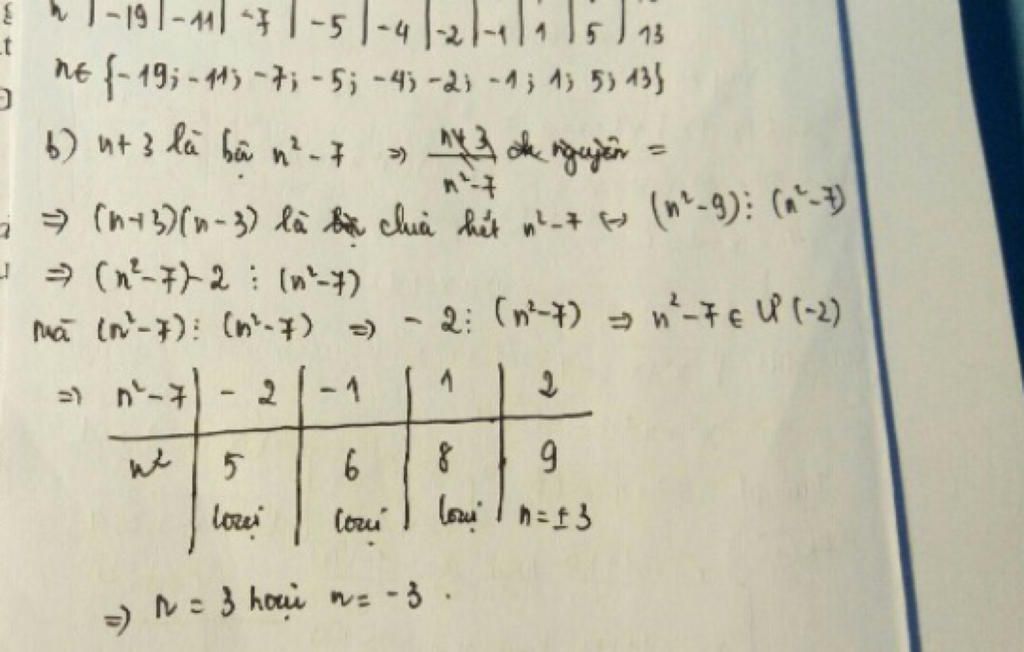 n | -19 | -11 | -7 | -5 | -4 | -2 | -1 | 1 | 5 | 13
n∈ {-19; -11; -7; -5; -4; -2; -1; 1; 5; 13}
b) n+3 là bội n² - 7 ⇒ n+3/n²-7 nguyên =
⇒ (n+3)(n-3) là chia hết n²-7 ↔ (n²-9)⋮(n²-7)
⇒ (n²-7)-2 ⋮ (n²-7)
mà (n²-7)⋮(n²-7) ⇒ -2⋮(n²-7) ⇒ n²-7 ∈ Ư(-2)
⇒ n²-7 | -2 | -1 | 1 | 2
n² | 5 | 6 | 8 | 9
loại | loại | loại | n=±3
⇒ n = 3 hoặc n = -3.